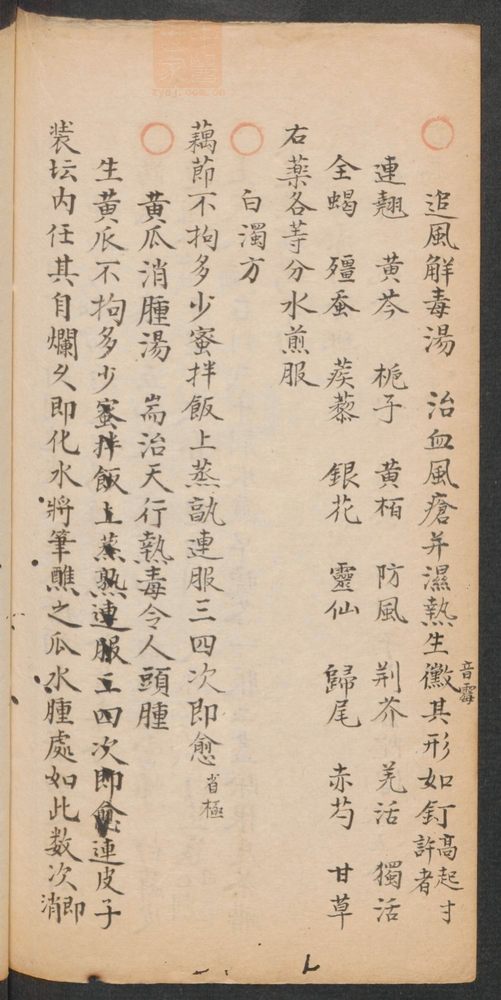 追風解毒湯　治血風瘡并濕熱生黴音霉其形如釘高起寸許者
連翹　黃芩　梔子　黃栢　防風　荆芥　羌活　獨活
全蝎　殭蚕　蒺藜　銀花　靈仙　歸尾　赤芍　甘草
右藥各等分水煎服
白濁方
藕節不拘多少蜜拌飯上蒸熟連服三四次即愈省極
黃瓜消腫湯　耑治天行熱毒令人頭腫
生黃瓜不拘多少蜜拌飯上蒸熟連服三四次即愈連皮子
裝坛内任其自爛久即化水將筆蘸之瓜水腫處如此数次即消
zydj.com.cn